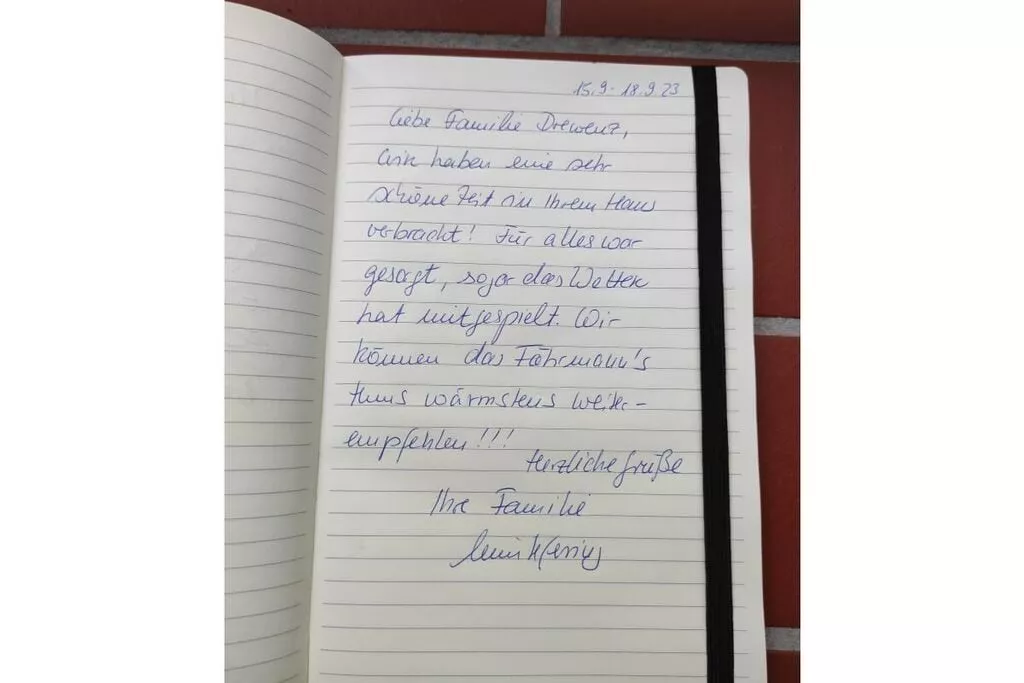 15.9. - 18.9.23
Liebe Familie Drewenz,
wir haben eine sehr
schöne Zeit in Ihrem Haus
verbracht! Für alles war
gesorgt, sogar das Wetter
hat mitgespielt. Wir
können das Fährmann's
Haus wärmstens weiter-
empfehlen!!!
Herzliche Grüße
Ihre Familie